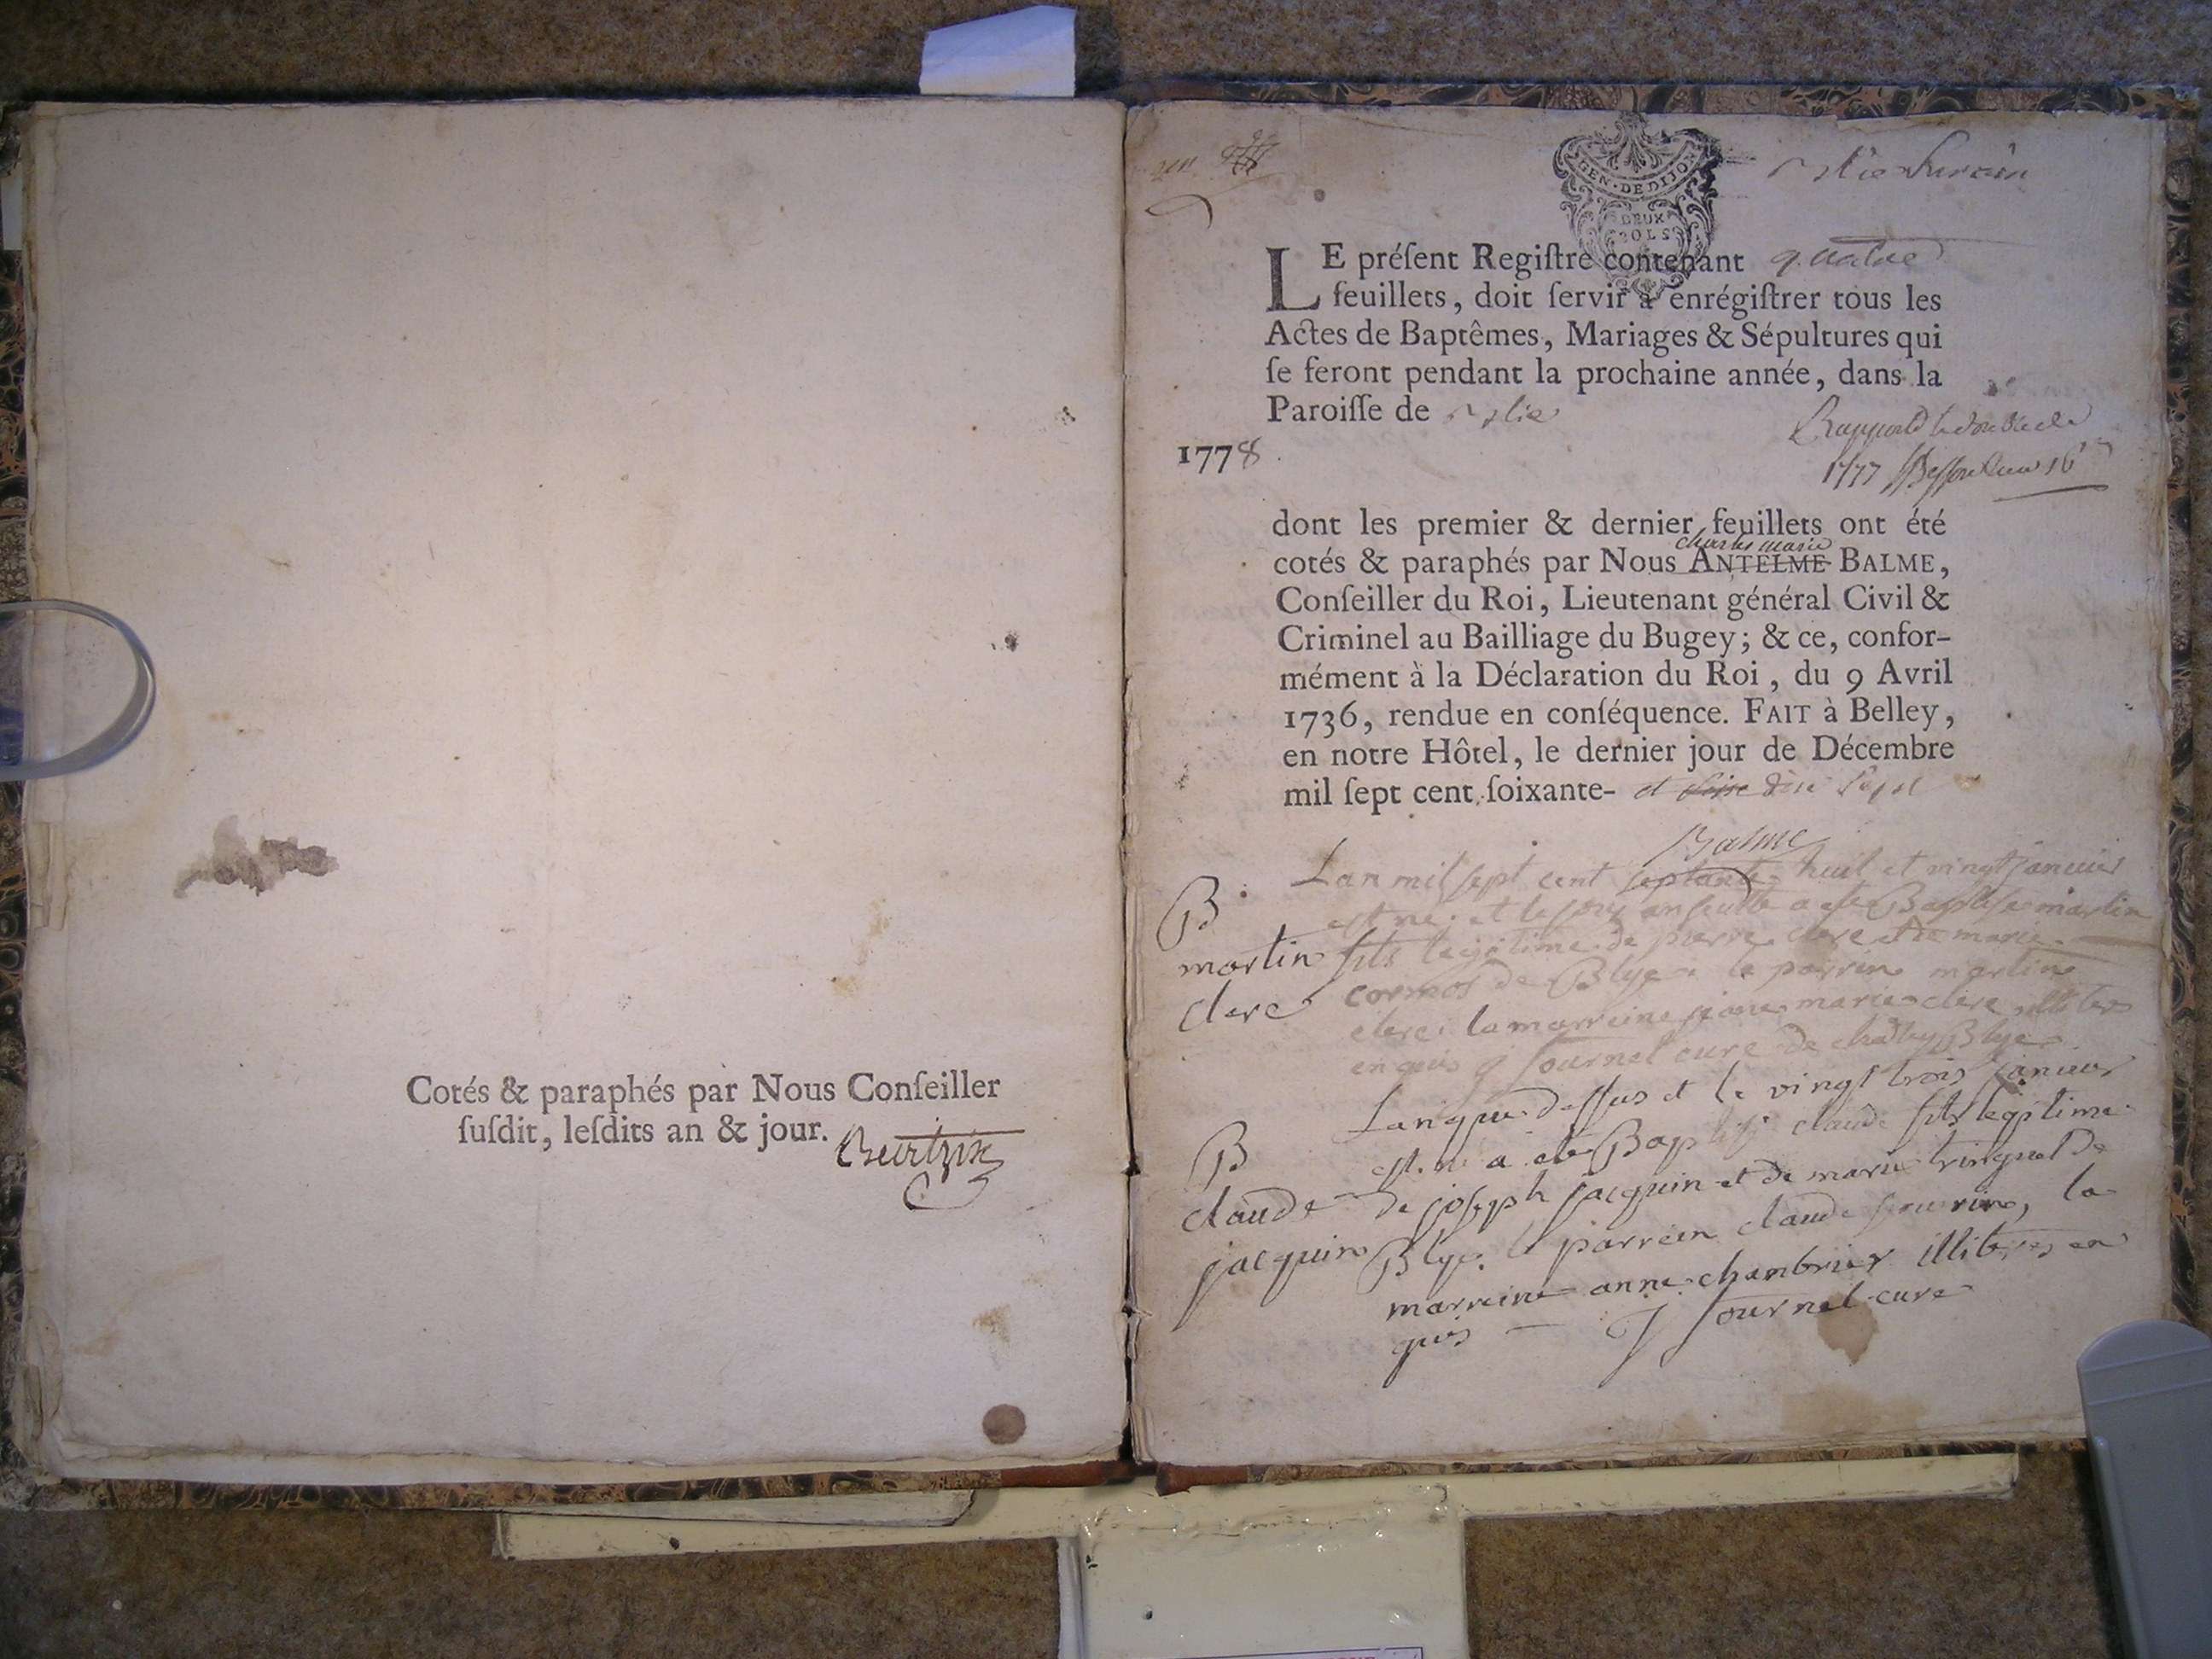 Cotés & paraphés par Nous Conſeiller
ſuſdit, leſdits an & jour.
GEN · DE DIJON
DEUX
SOLS
LE préſent Regiſtre contenant quatre
feuillets, doit ſervir à enrégiſtrer tous les
Actes de Baptêmes, Mariages & Sépultures qui
ſe feront pendant la prochaine année, dans la
Paroiſſe de
1778
1777
dont les premier & dernier feuillets ont été
charles marie
cotés & paraphés par Nous ANTELME BALME,
Conſeiller du Roi, Lieutenant général Civil &
Criminel au Bailliage du Bugey; & ce, confor-
mément à la Déclaration du Roi, du 9 Avril
1736, rendue en conſéquence. FAIT à Belley,
en notre Hôtel, le dernier jour de Décembre
mil ſept cent ſoixante- et dix sept
Balme
Lan mil sept cent septante huit et vingt janvier
B
est né et le jour a esté Baptisé martin
martin fils legitime de pierre clerc et de marie
clerc
cormos de Blye le parrin martin
clerc la marreine jeane marie clerc
enquis J fournel curé de Blye
Lan que dessus et le vingt trois janvier
B
est né a eté Baptisé claude fils legitime
claude
de joseph jacquin et de marie tringuel de
jacquin
Blye. le parrein claude la
marreine anne chambrier illiteres en
quis J fournel curé